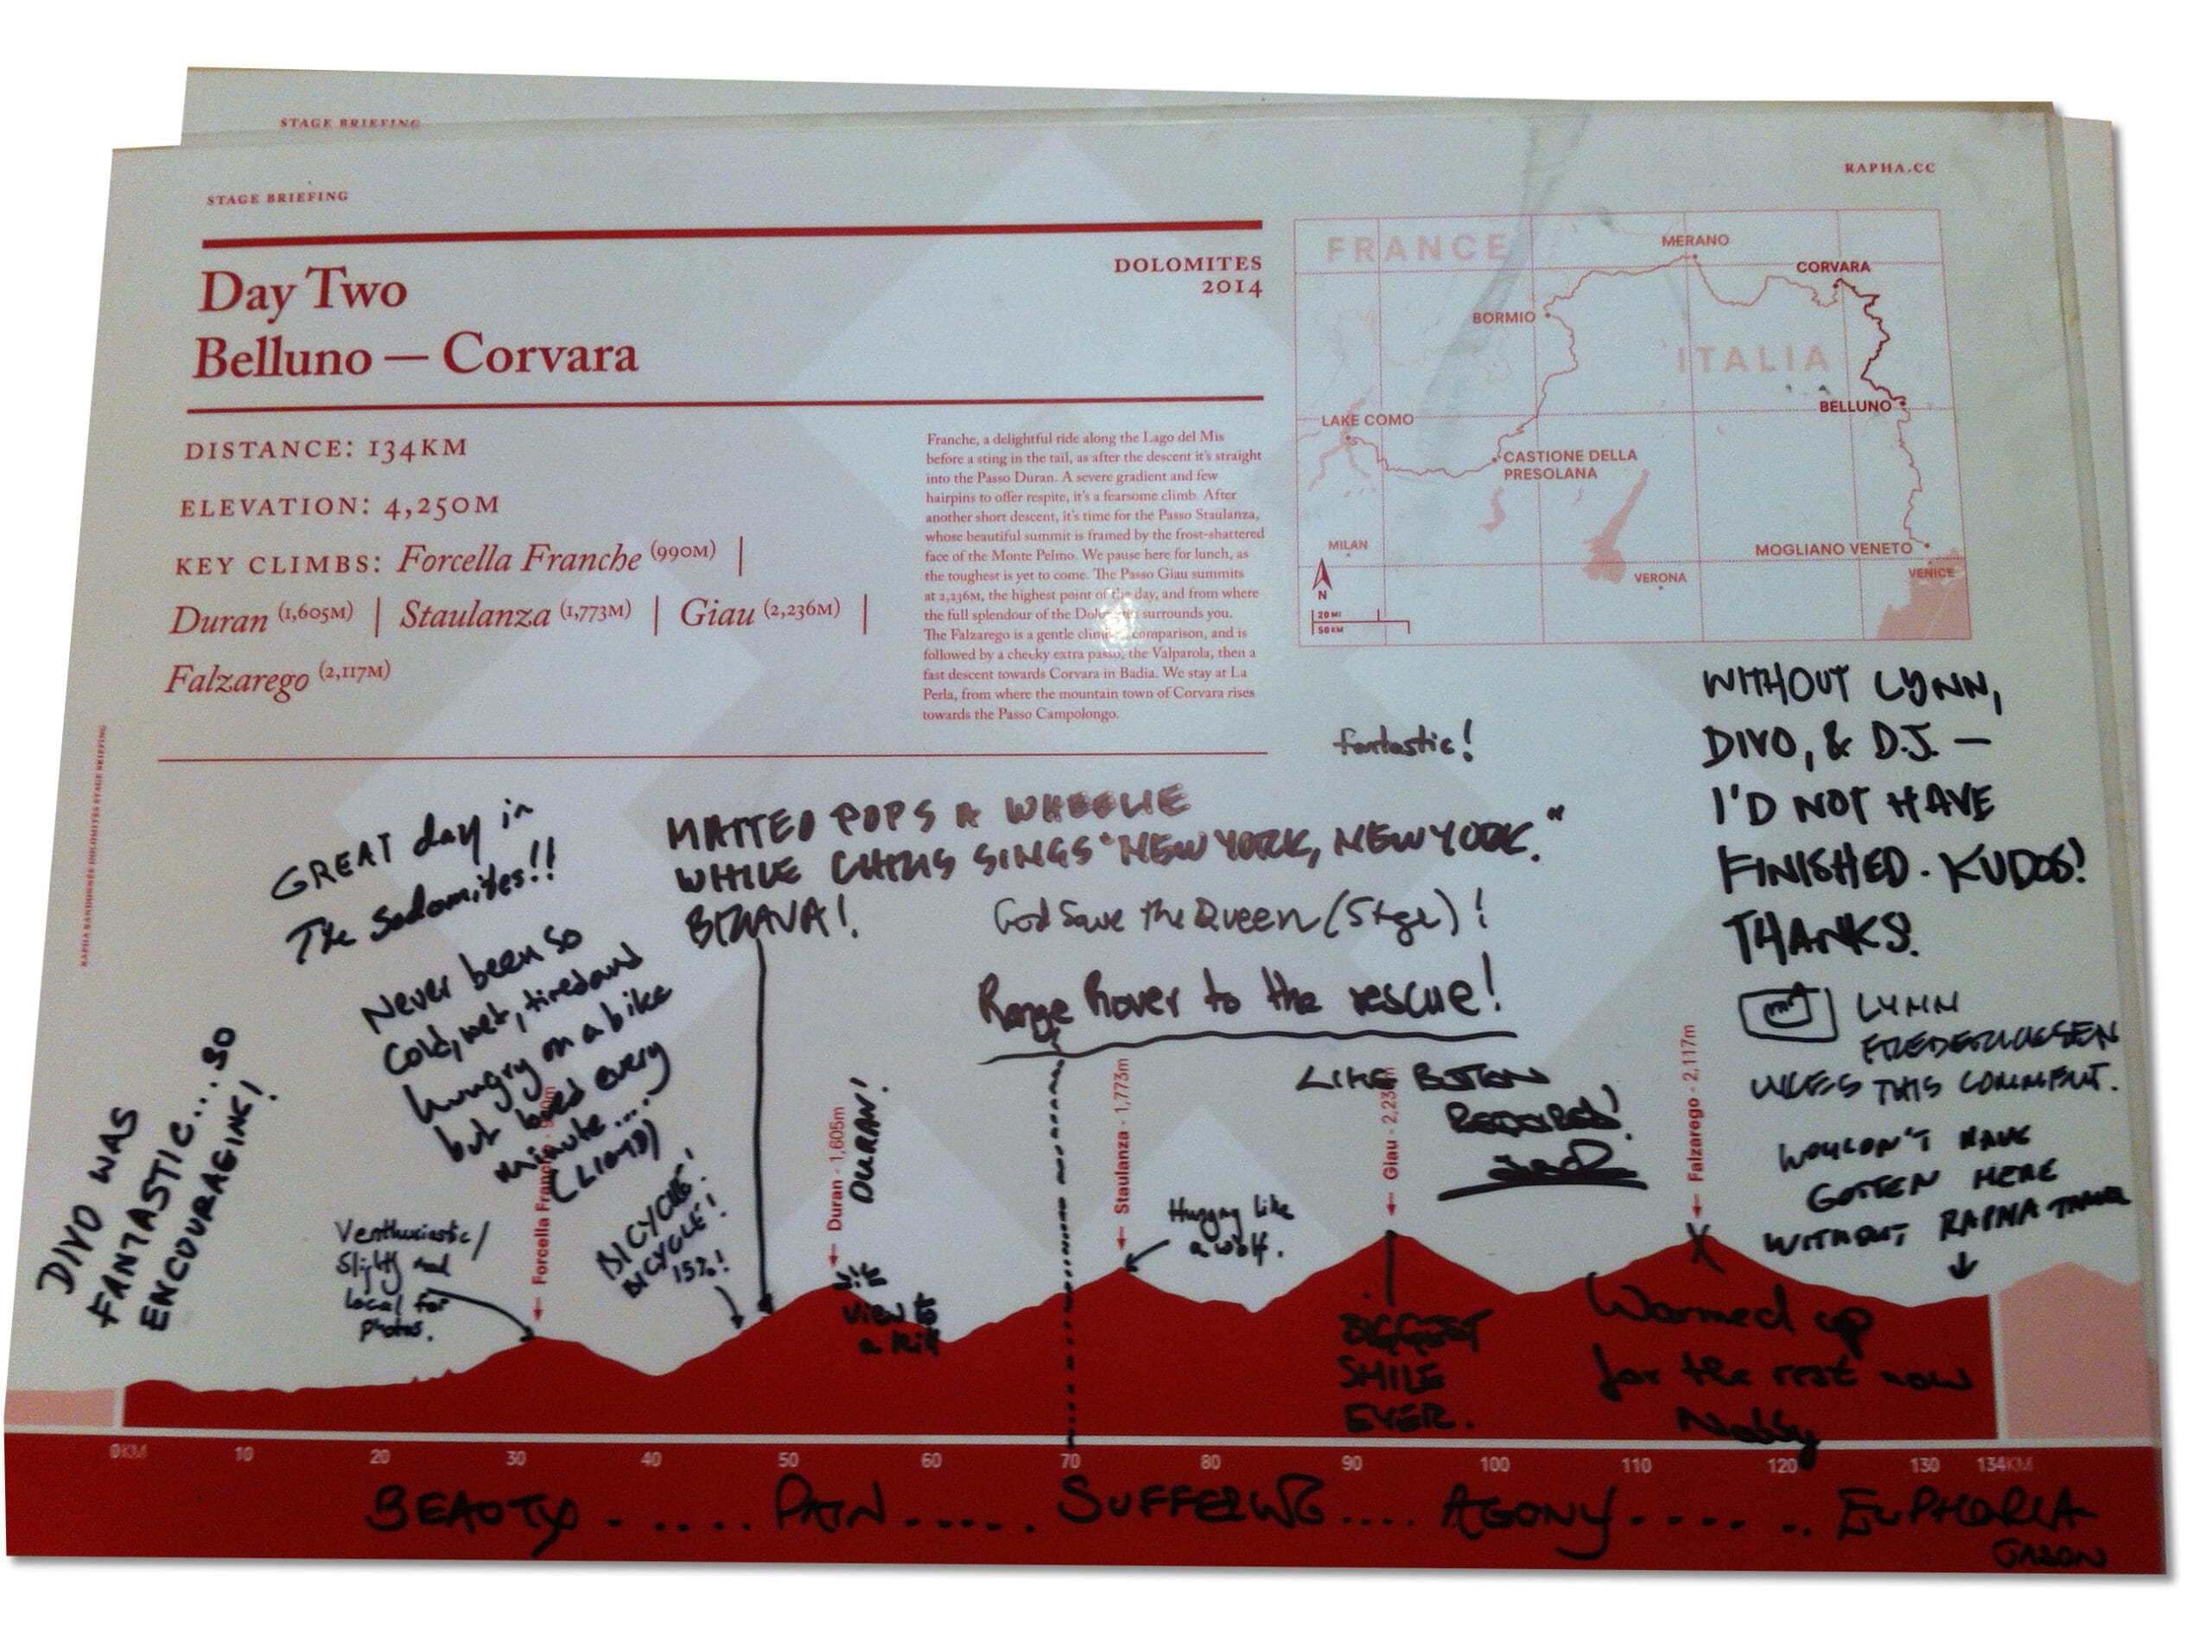 STAGE BRIEFING
STAGE BRIEFING
RAPHA.CC
Day Two
Belluno — Corvara
DOLOMITES
2014
DISTANCE: 134KM
ELEVATION: 4,250M
KEY CLIMBS: Forcella Franche (990M) |
Duran (1,605M) | Staulanza (1,773M) | Giau (2,236M) |
Falzarego (2,117M)
Franche, a delightful ride along the Lago del Mis
before a sting in the tail, as after the descent it's straight
into the Passo Duran. A severe gradient and few
hairpins to offer respite, it's a fearsome climb. After
another short descent, it's time for the Passo Staulanza,
whose beautiful summit is framed by the frost-shattered
face of the Monte Pelmo. We pause here for lunch, as
the toughest is yet to come. The Passo Giau summits
at 2,236M, the highest point of the day, and from where
the full splendour of the Dolomites surrounds you.
The Falzarego is a gentle climb in comparison, and is
followed by a cheeky extra passo, the Valparola, then a
fast descent towards Corvara in Badia. We stay at La
Perla, from where the mountain town of Corvara rises
towards the Passo Campolongo.
FRANCE
MERANO
CORVARA
BORMIO
ITALIA
BELLUNO
LAKE COMO
CASTIONE DELLA
PRESOLANA
MILAN
MOGLIANO VENETO
VERONA
VENICE
N
20 MI
50 KM
RAPHA RANDONNÉE DOLOMITES STAGE BRIEFING
fantastic!
WITHOUT LYNN,
DIVO, & D.J. —
I'D NOT HAVE
FINISHED. KUDOS!
THANKS!
GREAT day in
The Sodomites!!
MATTEO POPS A WHEELIE
WHILE CHRIS SINGS "NEW YORK, NEW YORK."
BRAVA!
God Save the Queen (Stge)!
Range Rover to the rescue!
Never been so
cold, wet, tired and
hungry on a bike
but loved every
minute.....
LYNN
FREDERICKSEN
LIKES THIS COMMENT.
LIKE BUTTON
REQUIRED!
DIVO WAS
FANTASTIC....SO
ENCOURAGING!
WOULDN'T HAVE
GOTTEN HERE
WITHOUT RAPHA TRAVEL
Venthusiastic/
Slightly mad
local for
photos.
BICYCLE!
BICYCLE!
15%!
DURAN!
view to
a kill
Hungry like
a wolf.
Forcella Franche - 990m
Duran - 1,605m
Staulanza - 1,773m
Giau - 2,236m
Falzarego - 2,117m
BIGGEST
SMILE
EVER.
Warmed up
for the rest now
Nobby
0KM 10 20 30 40 50 60 70 80 90 100 110 120 130 134KM
BEAUTY ...... PAIN ..... SUFFERING .... AGONY ...... EUPHORIA
JASON